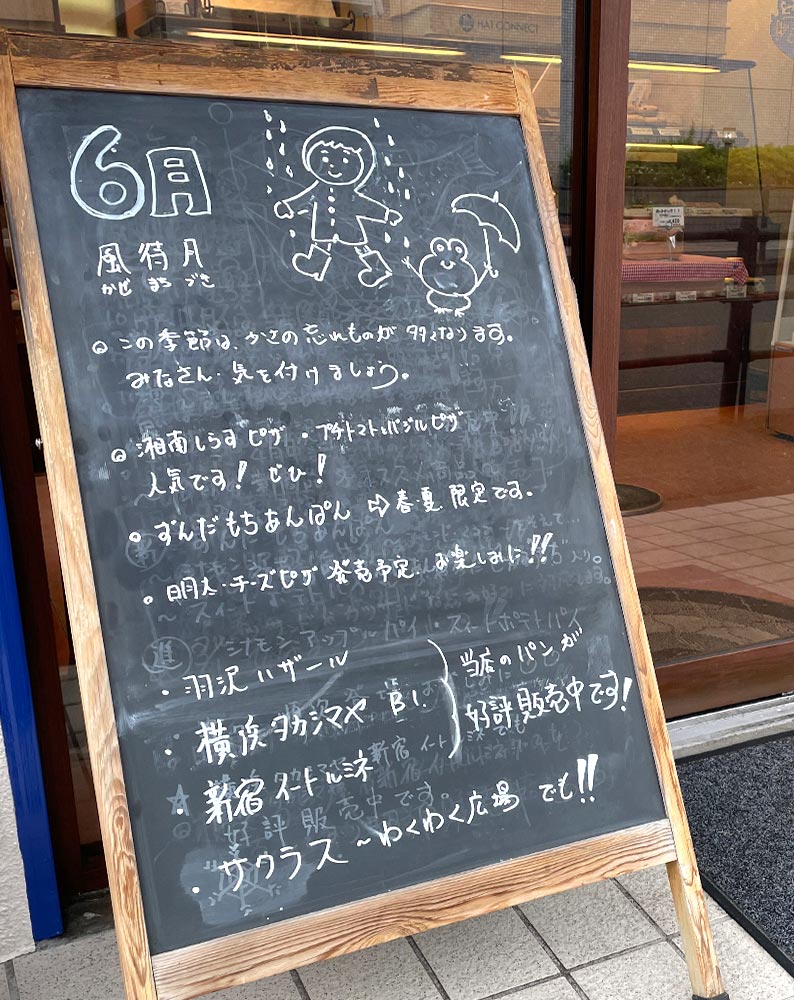 HAT CONNECT
6月
風待月
かぜ まち づき
この季節は、かさの忘れものが多くなります。
みなさん・気を付けましょう。
湘南しらすピザ・プチトマトとバジルピザ
人気です！ぜひ！
ずんだもちあんぱん ⇨ 春・夏 限定です。
・明太・チーズピザ 発売予定 お楽しみに!!
・羽沢ハザール
・横浜タカシマヤ B1.
当店のパンが
好評販売中です！
・新宿イートルミネ
・サウラス～わくわく広場 でも!!
好評販売中です。